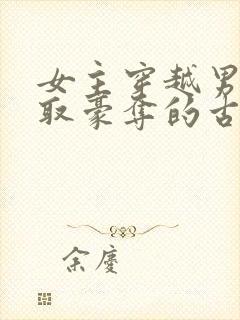 女主穿越男
取豪夺的古
余庆